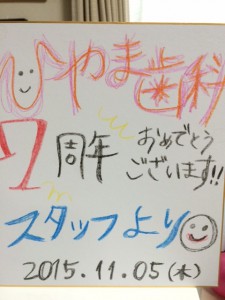 ひやま歯科
7周年おめでとう
ございます!!
スタッフより
2015.11.05(木)